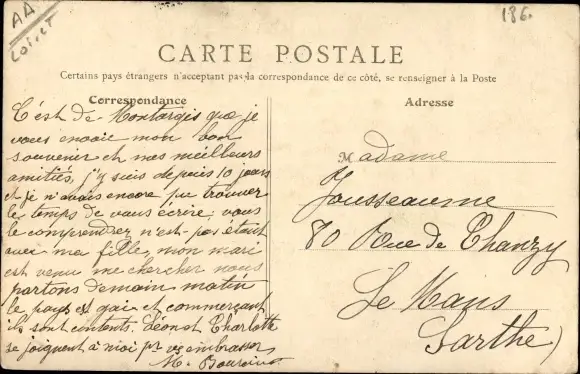 AA
Loiret
186.
CARTE POSTALE
Certains pays étrangers n'acceptant pas la correspondance de ce côté, se renseigner à la Poste
Correspondance
C'est de Montargis que je
vous envoie mon bon
souvenir et nos meilleurs
amitiés, j'y suis depuis 10 jours
et je n'avais encore pu trouver
le temps de vous écrire, vous
le comprendrez n'est-pas étant
avec ma fille, mon mari
est venu me chercher nous
partons demain matin
le pays est gai et commerçant
ils sont contents. Léon et Charlotte
se joignent à moi pr vs embrasser
M.
Adresse
Madame
Jousseaume
80 Rue de Chanzy
Le Mans
Sarthe)